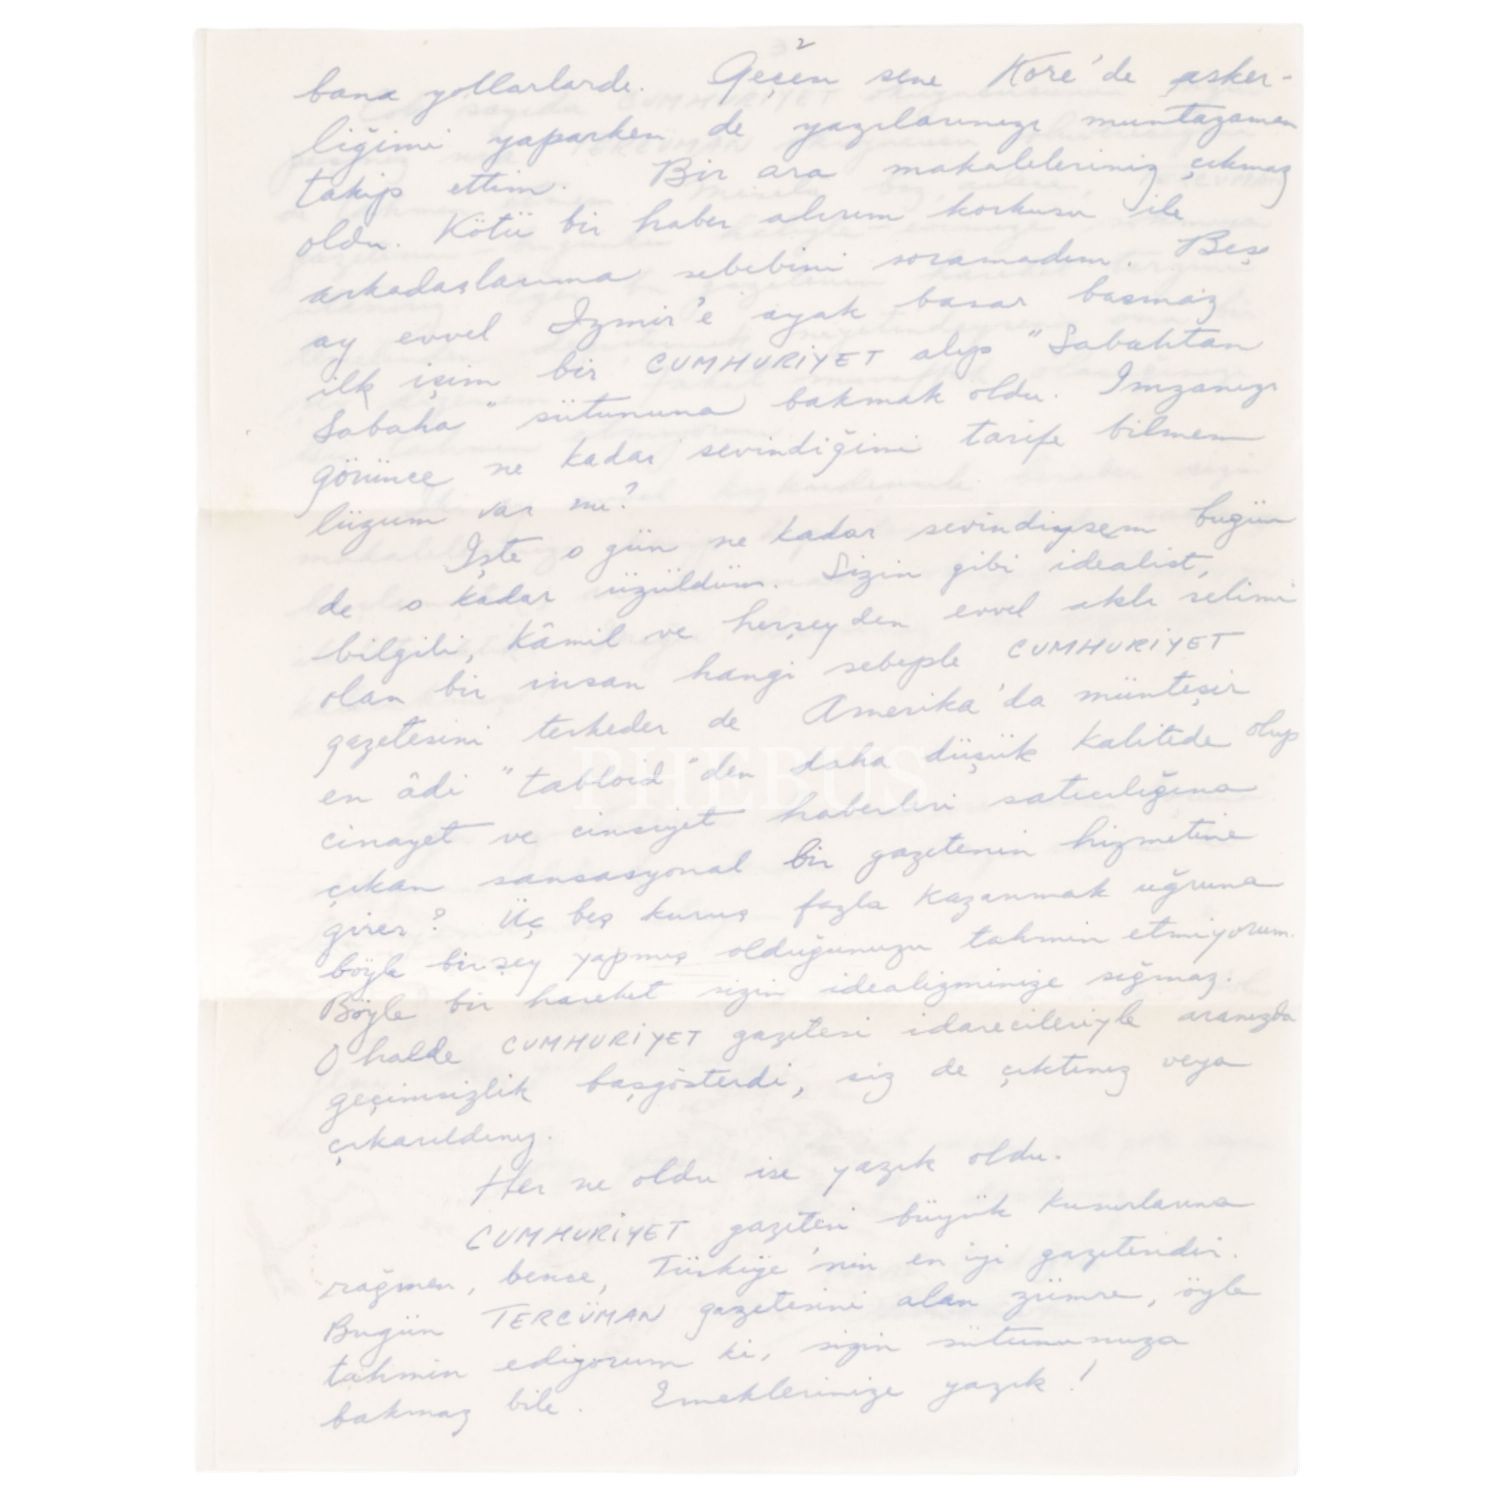 2
bana yollarlardı. Geçen sene Kore'de asker-
liğimi yaparken de yazılarınızı muntazaman
takip ettim. Bir ara makaleleriniz çıkmaz
oldu. Kötü bir haber alırım korkusu ile
arkadaşlarıma sebebini soramadım. Beş
ay evvel İzmir'e ayak basar basmaz
ilk işim bir CUMHURİYET alıp "Sabahtan
Sabaha" sütununa bakmak oldu. İmzanızı
görünce ne kadar sevindiğimi tarife bilmem
lüzum var mı?
İşte o gün ne kadar sevindiysem bugün
de o kadar üzüldüm. Sizin gibi idealist,
bilgili, kâmil ve herşeyden evvel aklı selimi
olan bir insan hangi sebeple CUMHURİYET
gazetesini terkeder de Amerika'da münteşir
en âdi "tabloid"den daha düşük kalitede olup
cinayet ve cinsiyet haberleri satıcılığına
çıkan sansasyonal bir gazetenin hizmetine
girer? Üç beş kuruş fazla kazanmak uğruna
böyle birşey yapmış olduğunuzu tahmin etmiyorum.
Böyle bir hareket sizin idealizminize sığmaz.
O halde CUMHURİYET gazetesi idarecileriyle aranızda
geçimsizlik başgösterdi, siz de çıktınız veya
çıkarıldınız.
Her ne oldu ise yazık oldu.
CUMHURİYET gazetesi büyük kusurlarına
rağmen, bence, Türkiye'nin en iyi gazetesidir.
Bugün TERCÜMAN gazetesini alan zümre, öyle
tahmin ediyorum ki, sizin sütununuza
bakmaz bile. Emeklerinize yazık!
PHEBUS